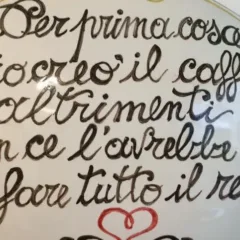 Per prima cosa
io creò il caff
altrimenti
n ce l'avrebbe
fare tutto il re